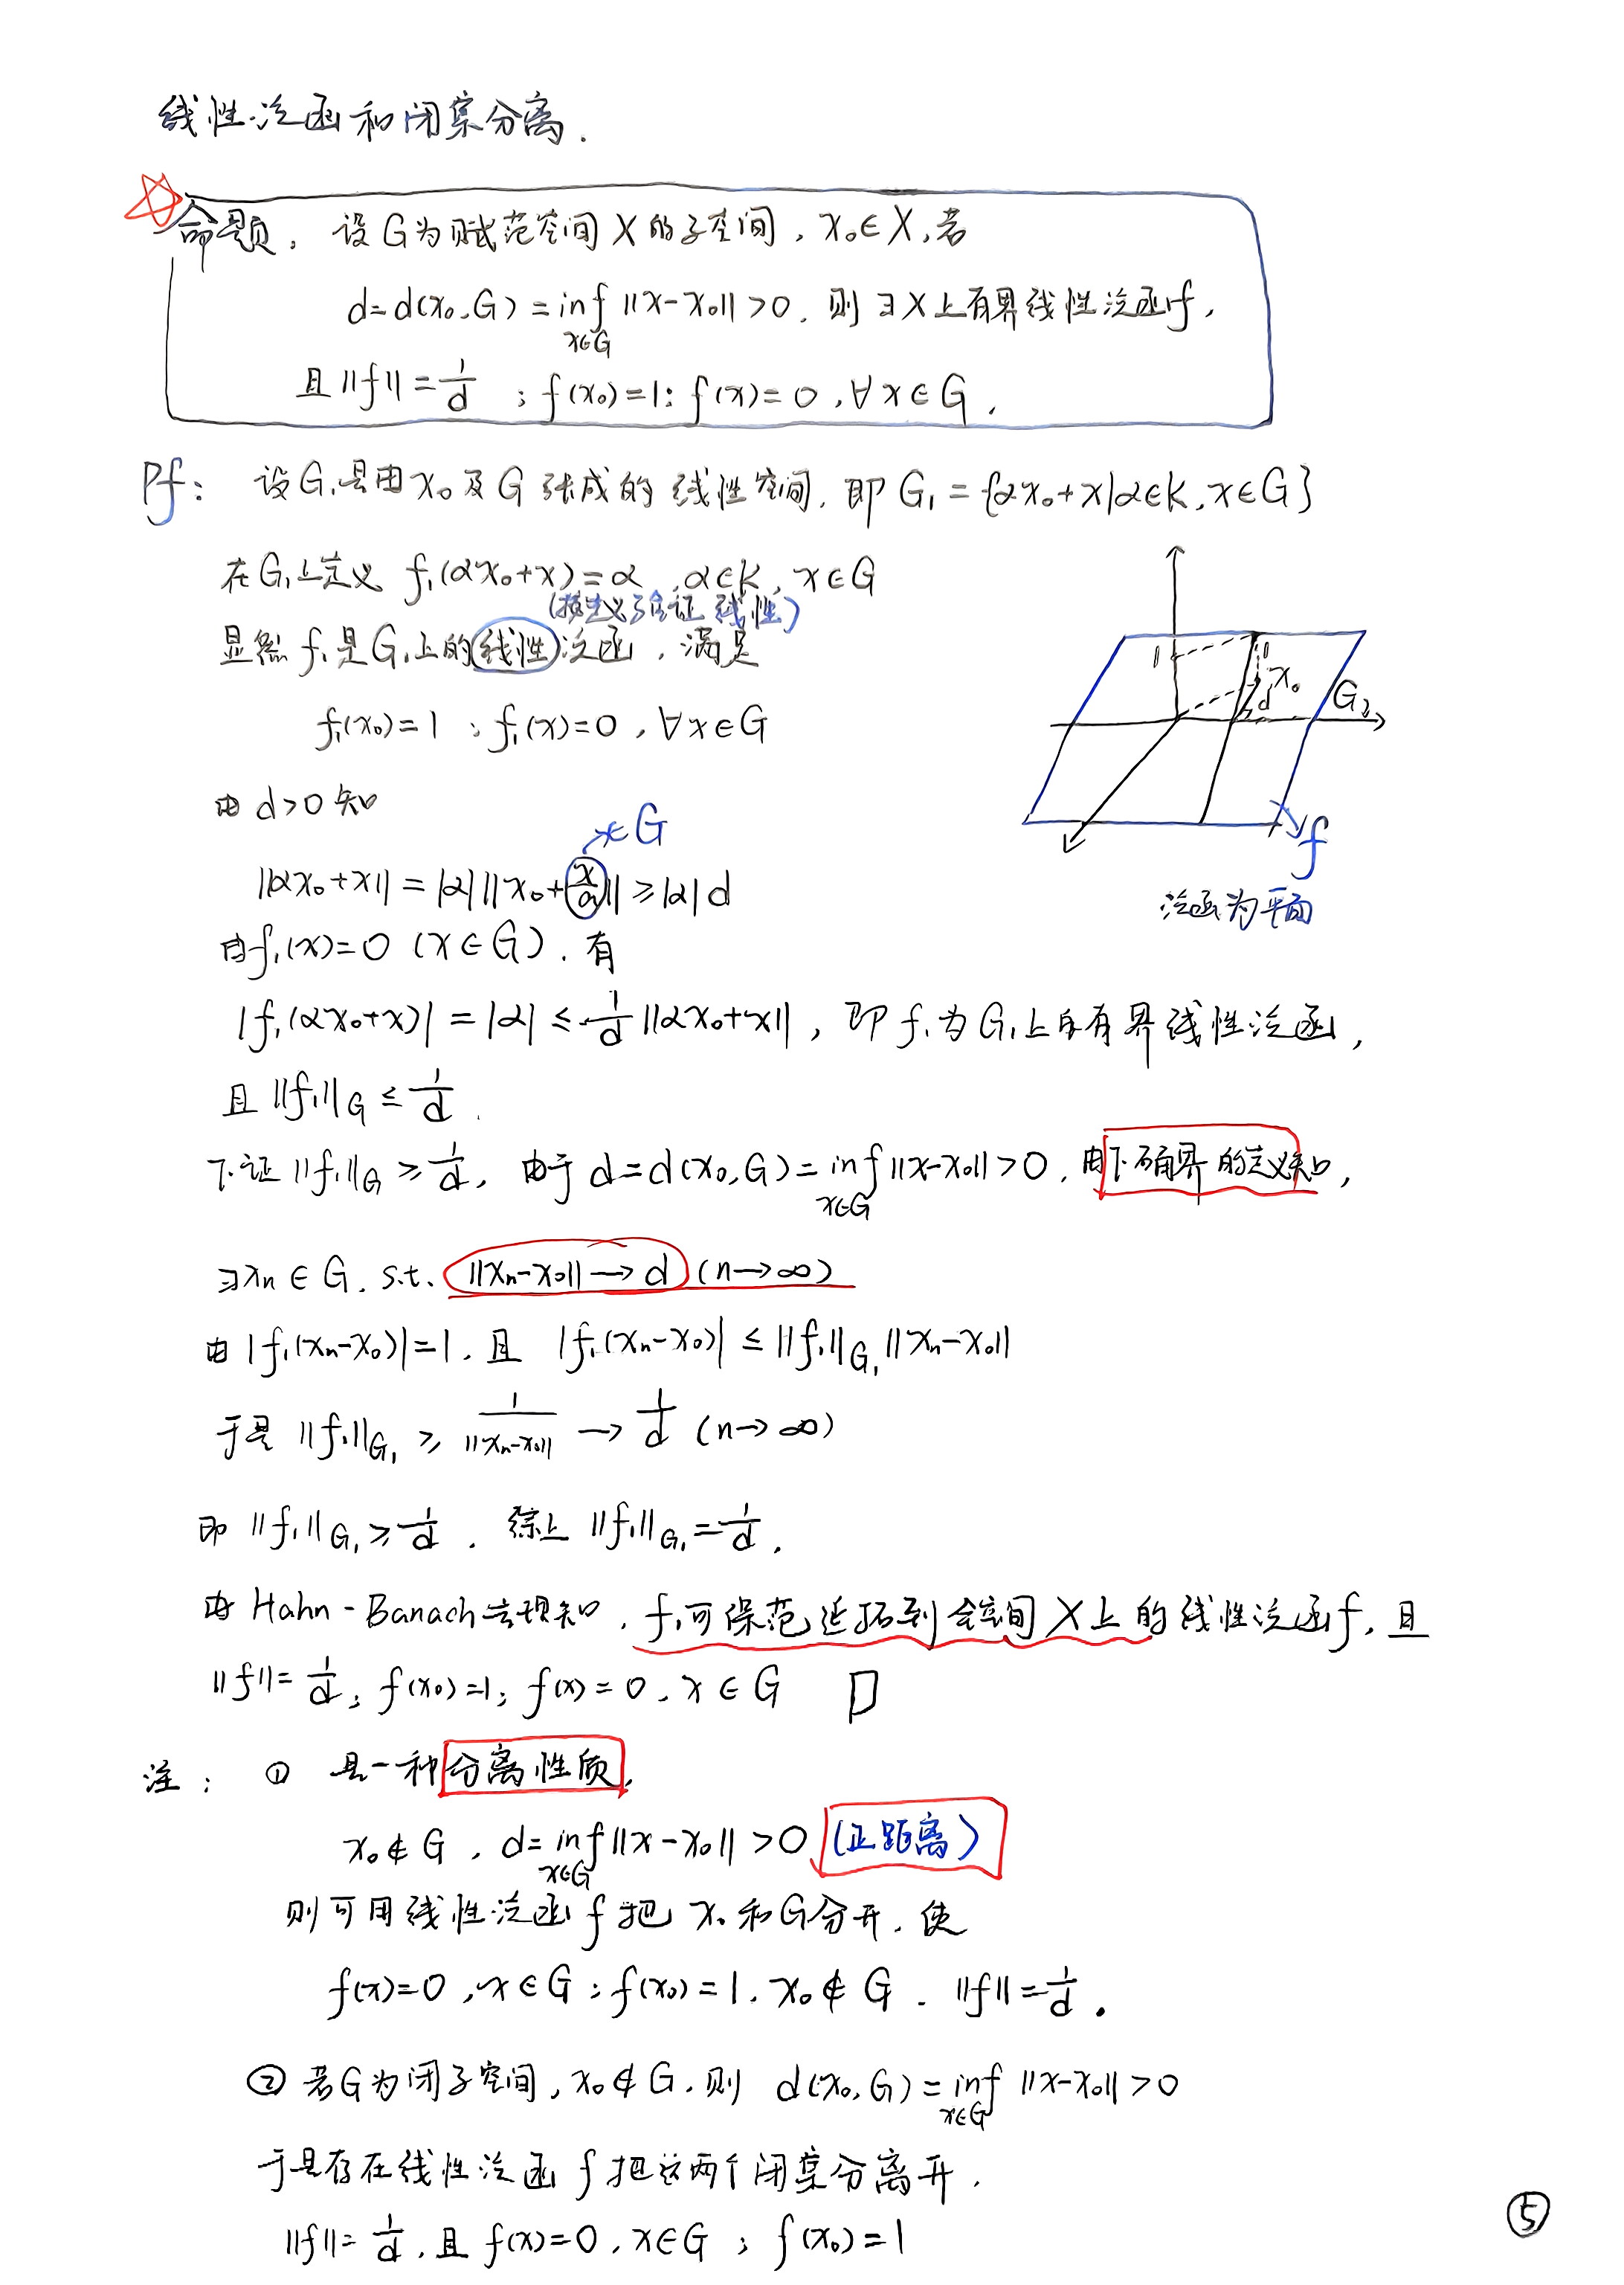 线性泛函和闭集分离.
命题. 设G为赋范空间X的子空间, x₀∈X, 若
d=d(x₀,G)=inf‖x-x₀‖>0. 则∃X上有界线性泛函f,
x∈G
且‖f‖=1/d ; f(x₀)=1; f(x)=0, ∀x∈G.
Pf: 设G₁是由x₀及G张成的线性空间. 即G₁={αx₀+x|α∈K, x∈G}
在G₁上定义 f₁(αx₀+x)=α, α∈K, x∈G
(按定义可验证线性)
显然f₁是G₁上的线性泛函, 满足
f₁(x₀)=1 ; f₁(x)=0, ∀x∈G
由d>0知
∈G
‖αx₀+x‖=|α|‖x₀+x/α‖≥|α|d
由f₁(x)=0 (x∈G). 有
|f₁(αx₀+x)|=|α|≤1/d‖αx₀+x‖, 即f₁为G₁上的有界线性泛函,
且‖f₁‖G≤1/d.
下证‖f₁‖G≥1/d, 由于d=d(x₀,G)=inf‖x-x₀‖>0, 由下确界的定义知,
x∈G
∃xₙ∈G. s.t. ‖xₙ-x₀‖→d (n→∞)
由|f₁(xₙ-x₀)|=1. 且 |f₁(xₙ-x₀)|≤‖f₁‖G₁‖xₙ-x₀‖
于是‖f₁‖G₁≥1/‖xₙ-x₀‖→1/d (n→∞)
即‖f₁‖G₁≥1/d. 综上‖f₁‖G₁=1/d.
由Hahn-Banach定理知, f₁可保范延拓到全空间X上的线性泛函f, 且
‖f‖=1/d; f(x₀)=1; f(x)=0, x∈G □
1
x₀
d
f
泛函为平面
注: ① 是一种分离性质,
x₀∉G, d=inf‖x-x₀‖>0 (正距离)
x∈G
则可用线性泛函f把x₀和G分开, 使
f(x)=0, x∈G; f(x₀)=1, x₀∉G. ‖f‖=1/d.
② 若G为闭子空间, x₀∉G, 则 d(x₀,G)=inf‖x-x₀‖>0
x∈G
于是存在线性泛函f把这两个闭集分离开.
‖f‖=1/d, 且f(x)=0, x∈G ; f(x₀)=1
⑤